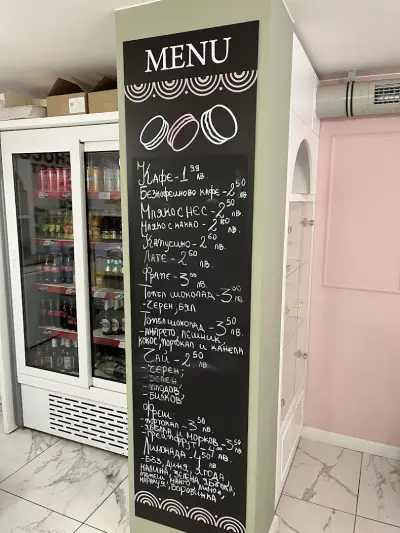 MENU
Кафе - 1 99 лв.
Безкофеиново кафе - 2 50 лв.
Мляко с нес - 2 60 лв.
Мляко с какао - 2 60 лв.
Капучино - 2 60 лв.
Лате - 2 60 лв.
Фрапе - 3 00 лв.
Топъл шоколад - 3 00 лв.
- черен, бял
Топъл шоколад - 3 50 лв.
- амарето, лешник,
кокос, портокал и канела
Чай - 2 50 лв.
- черен;
- зелен;
- плодов;
- билков;
Фреш:
- портокал - 3 50 лв.
- ябълка и морков - 3 50 лв.
- грейпфрут - 4 00 лв.
Лимонада - 4 50 лв.
- бъз, диня, ягода,
малина, зелена ябълка,
боровинка